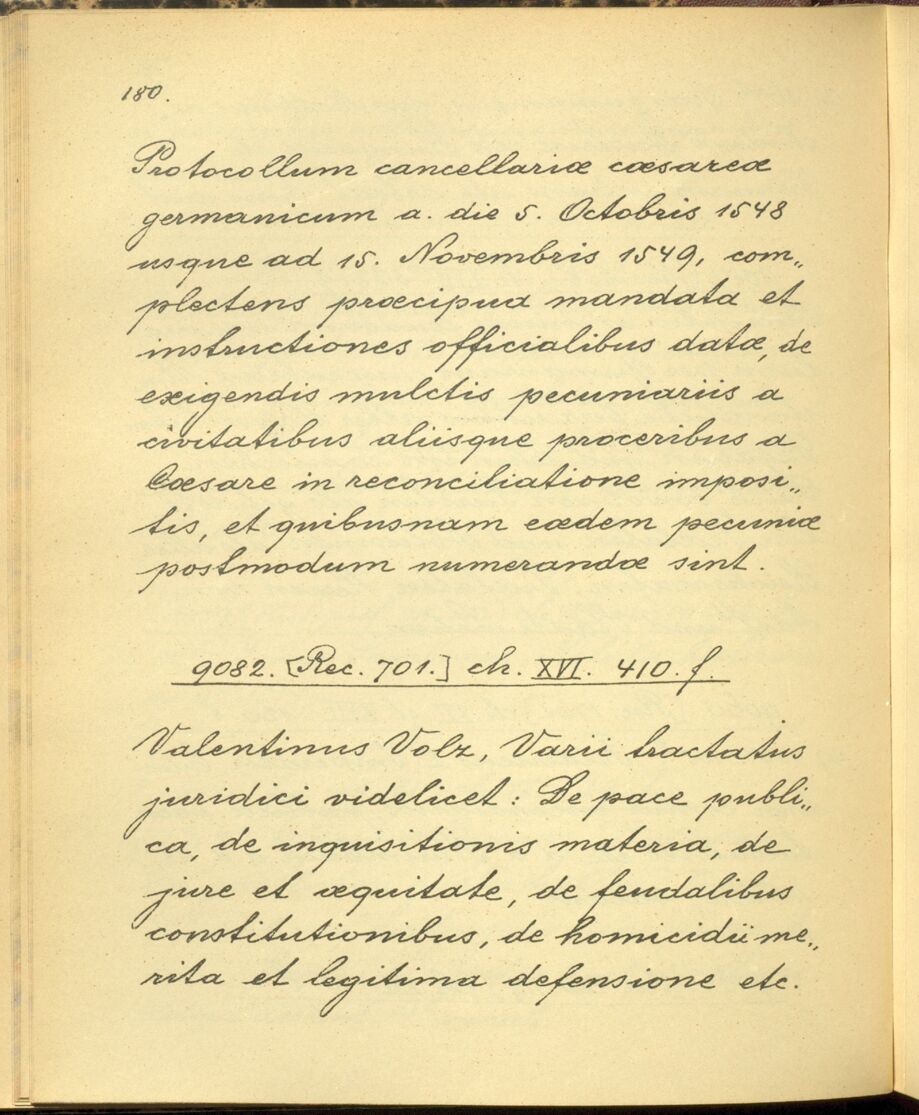 180.
Protocollum cancellariæ cæsareæ
germanicum a. die 5. Octobris 1548
usque ad 15. Novembris 1549, com„
plectens præcipua mandata et
instructiones officialibus datæ, de
exigendis mulctis pecuniariis a
civitatibus aliisque proceribus a
Cæsare in reconciliatione imposi„
tis, et quibusnam eædem pecuniæ
postmodum numerandæ sint.
9082. [Rec. 701.] ch. XVI. 410. f.
Valentinus Volz, Varii tractatus
juridici videlicet: De pace publi„
ca, de inquisitionis materia, de
jure et æquitate, de feudalibus
constitutionibus, de homicidii me„
rita et legitima defensione etc.